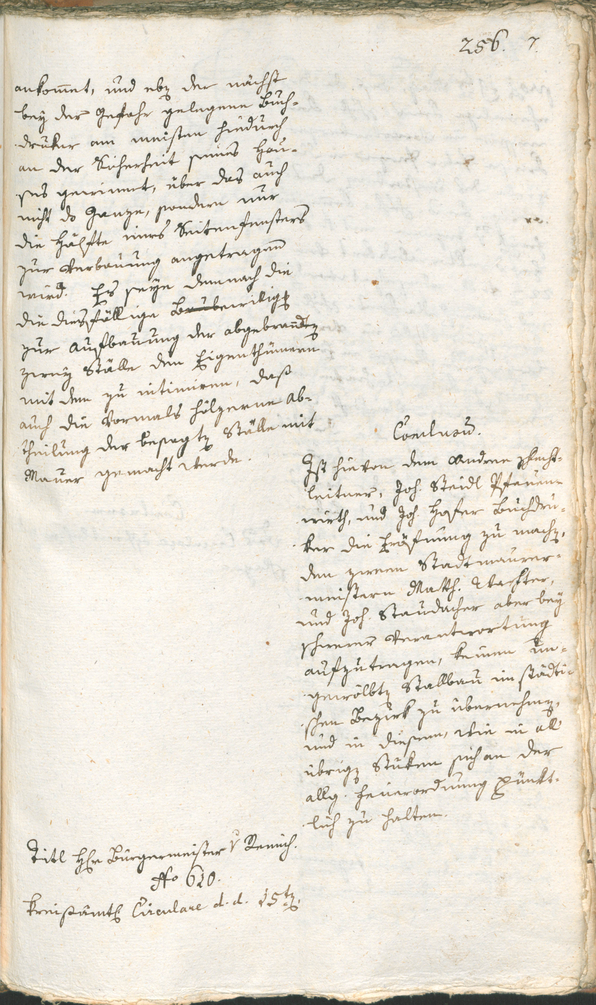 256. 7.
ankommt, und ebz der nächst
bey der Gefahr gelegene Buch-
druker am meisten hindurch
an der Sicherheit seines Hau-
ses gewinnet, über das auch
nicht do Ganze, sondern nur
die Hälfte eines Seitenfensters
zur Verbauung angetragen
wird. Es seye demnach die
die diesfällige Bewilligg
zur Aufbauung der abgebrandtz
zweiy Ställe den Eigenthümern
mit dem zu intimiren, daß
auch die vormals hölzerne Ab-
theilung der besagtz Ställe mit
Mauer gemacht werde.
Conclusum.
Ist hievon dem Andree
leitner, Joh. Steidl Pfauen-
wirth, und Joh. Hofer Buchdru-
ker die Eröfnung zu machz,
den zween Stadtmaurer-
meistern Matth. Wachter,
und Joh. Staudacher aber bey
schwerer Verantwortung
aufzutragen, keinen un-
gewölbtz Stallbau im städti-
schen Bezirk zu übernehmz,
und in diesem, wie in all
übrigz Stüken sich an der
allg. Feuerordnung pünkt-
lich zu halten.
Titl Hr Bürgermeister v Remich.
No 610.
Kreisämtl Circulare d. d. 15tz